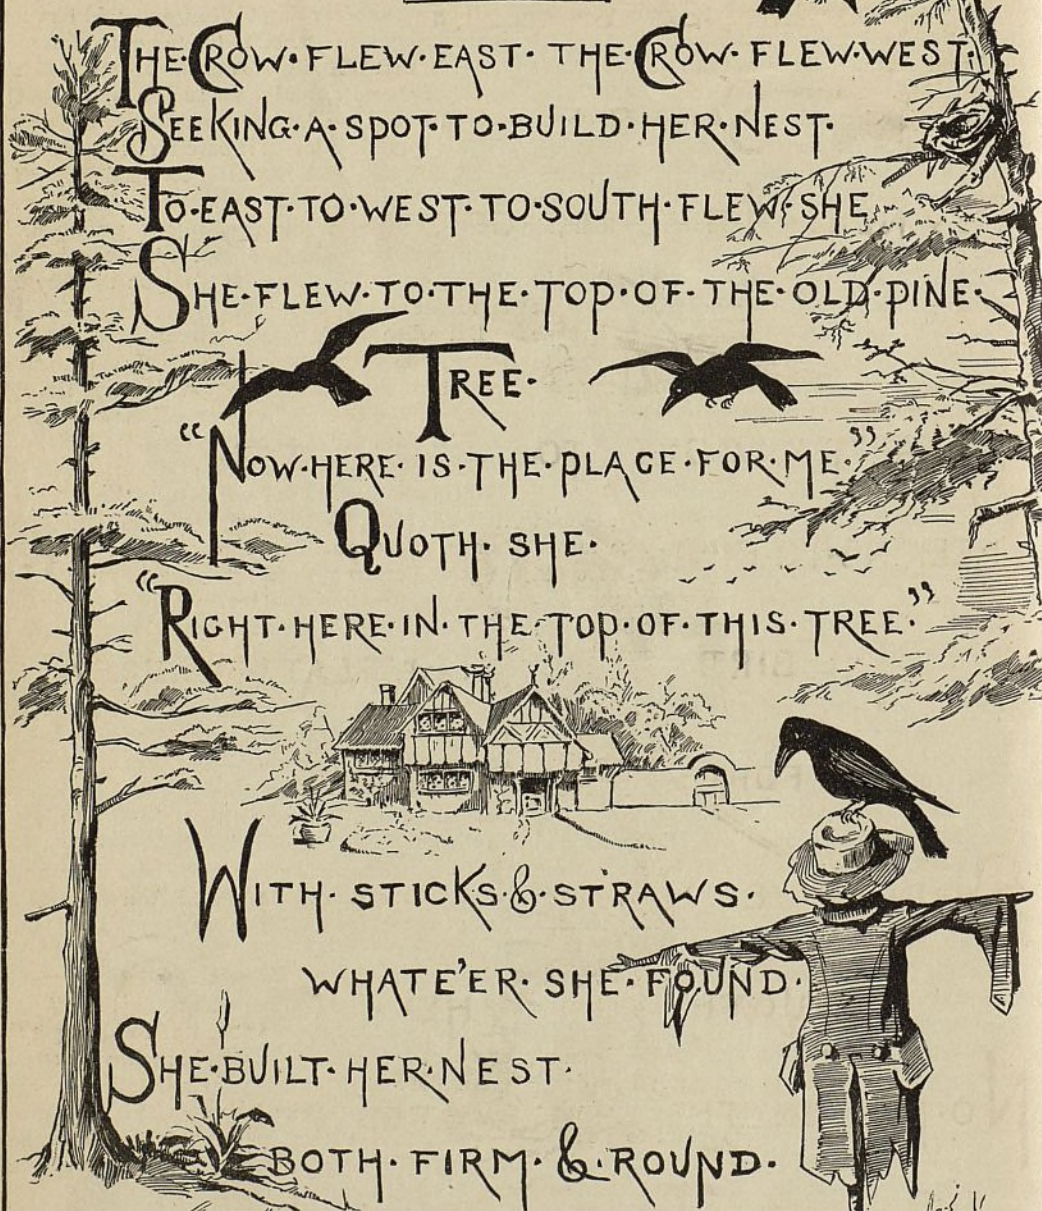 THE·CROW·FLEW·EAST· THE·CROW· FLEW·WEST·
SEEKING·A·SPOT·TO·BUILD·HER·NEST·
TO·EAST·TO·WEST·TO·SOUTH·FLEW·SHE
SHE·FLEW·TO·THE·TOP·OF·THE·OLD·PINE·
TREE·
“NOW·HERE·IS·THE·PLACE·FOR·ME·”
QUOTH· SHE·
“RIGHT·HERE·IN·THE·TOP·OF·THIS·TREE·”
WITH· STICKS·&·STRAWS·
WHATE'ER· SHE·FOUND·
SHE·BUILT·HER·NEST·
BOTH· FIRM· &·ROUND·